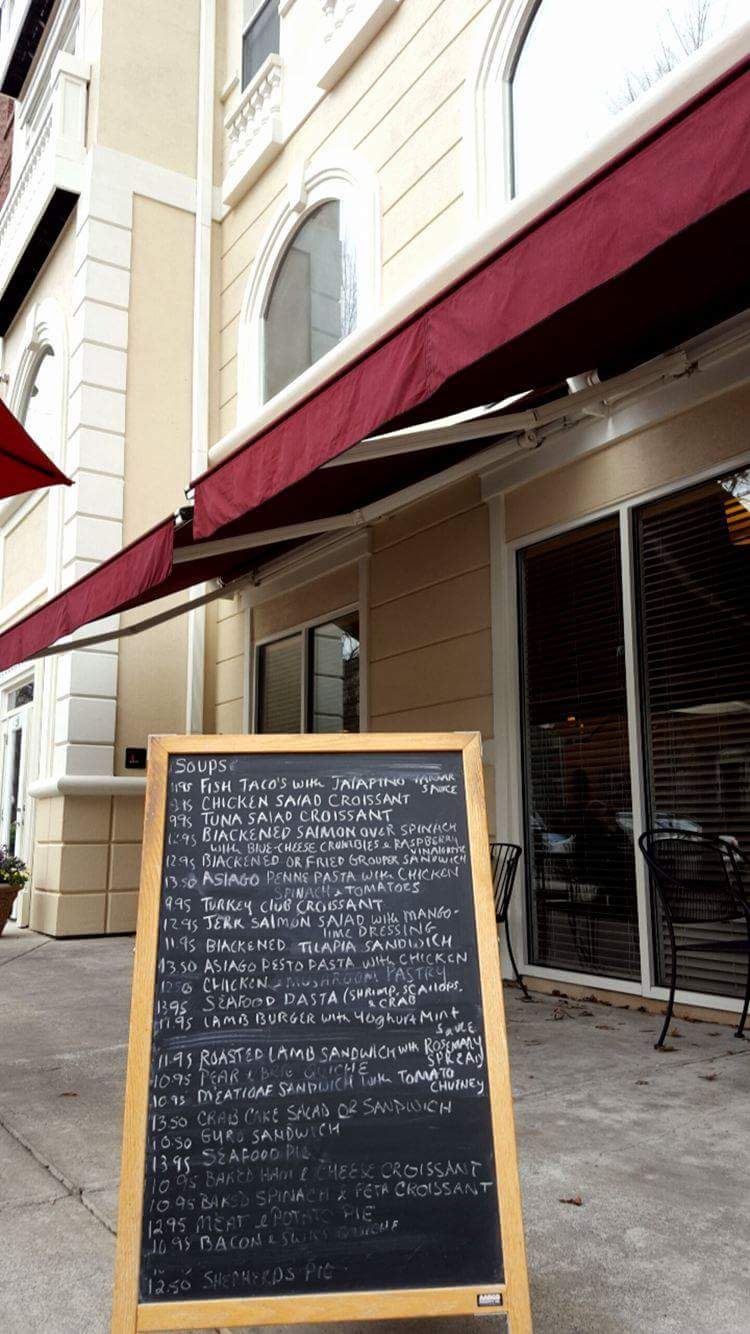 SOUPS
11.95 FISH TACO'S with JALAPINO TARTAR
SAUCE
CHICKEN SALAD CROISSANT
9.95 TUNA SALAD CROISSANT
12.95 BLACKENED SALMON OVER SPINACH
with BLUE-CHEESE CRUMBLES & RASPBERRY
VINAIGRETTE
12.95 BLACKENED OR FRIED GROUPER SANDWICH
13.50 ASIAGO PENNE PASTA with CHICKEN
SPINACH & TOMATOES
9.95 TURKEY CLUB CROISSANT
12.95 JERK SALMON SALAD with MANGO-
LIME DRESSING
11.95 BLACKENED TILAPIA SANDWICH
13.50 ASIAGO PESTO PASTA with CHICKEN
CHICKEN & MUSHROOM PASTRY
13.95 SEAFOOD PASTA (SHRIMP, SCALLOPS,
& CRAB
11.95 LAMB BURGER with YOGHURT MINT
SAUCE
11.95 ROASTED LAMB SANDWICH with ROSEMARY
SPREAD
10.95 PEAR & BRIE QUICHE
10.95 MEATLOAF SANDWICH with TOMATO
CHUTNEY
13.50 CRAB CAKE SALAD OR SANDWICH
10.50 GYRO SANDWICH
13.95 SEAFOOD PIE
10.95 BAKED HAM & CHEESE CROISSANT
10.95 BAKED SPINACH & FETA CROISSANT
12.95 MEAT & POTATO PIE
10.95 BACON & SWISS QUICHE
12.50 SHEPHERDS PIE
AARCO